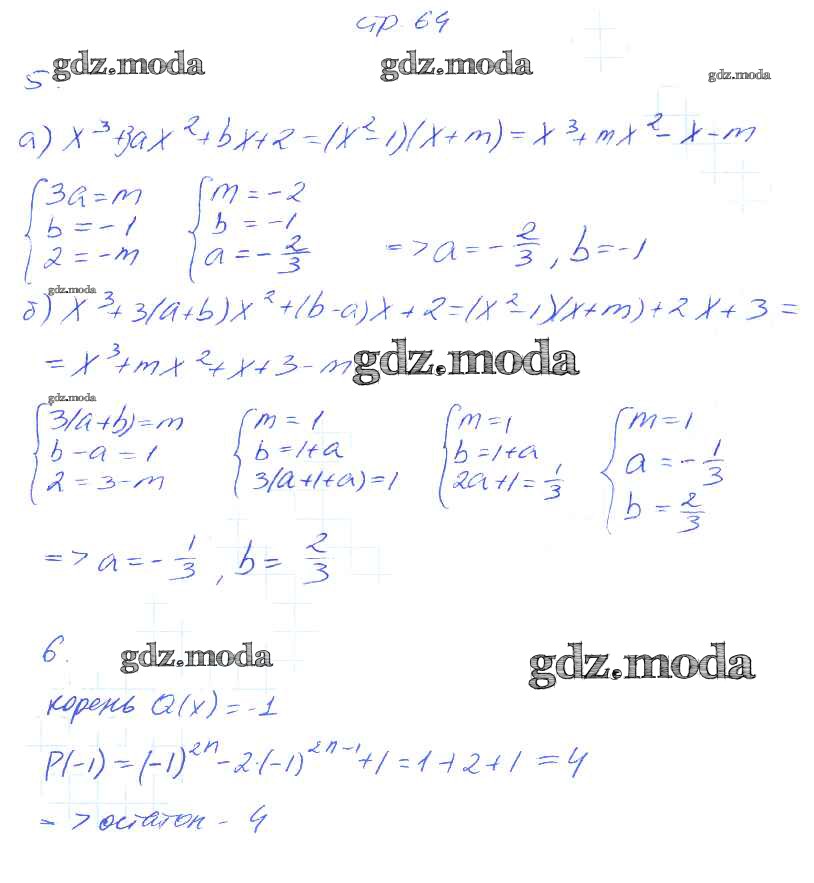 стр. 64
gdz.moda gdz.moda gdz.moda
5.
а) x³+3ax²+bx+2=(x²-1)(x+m)=x³+mx²-x-m
{3a=m {m=-2
b=-1 b=-1
2=-m a=-2/3 => a=-2/3, b=-1
gdz.moda
б) x³+3(a+b)x²+(b-a)x+2=(x²-1)(x+m)+2x+3=
=x³+mx²+x+3-m gdz.moda
gdz.moda
{3(a+b)=m {m=1 {m=1 {m=1
b-a=1 b=1+a b=1+a a=-1/3
2=3-m 3(a+1+a)=1 2a+1=1/3 b=2/3
=> a=-1/3, b=2/3
6. gdz.moda gdz.moda
корень Q(x)=-1
P(-1)=(-1)²ⁿ-2·(-1)²ⁿ⁻¹+1=1+2+1=4
=> остаток - 4